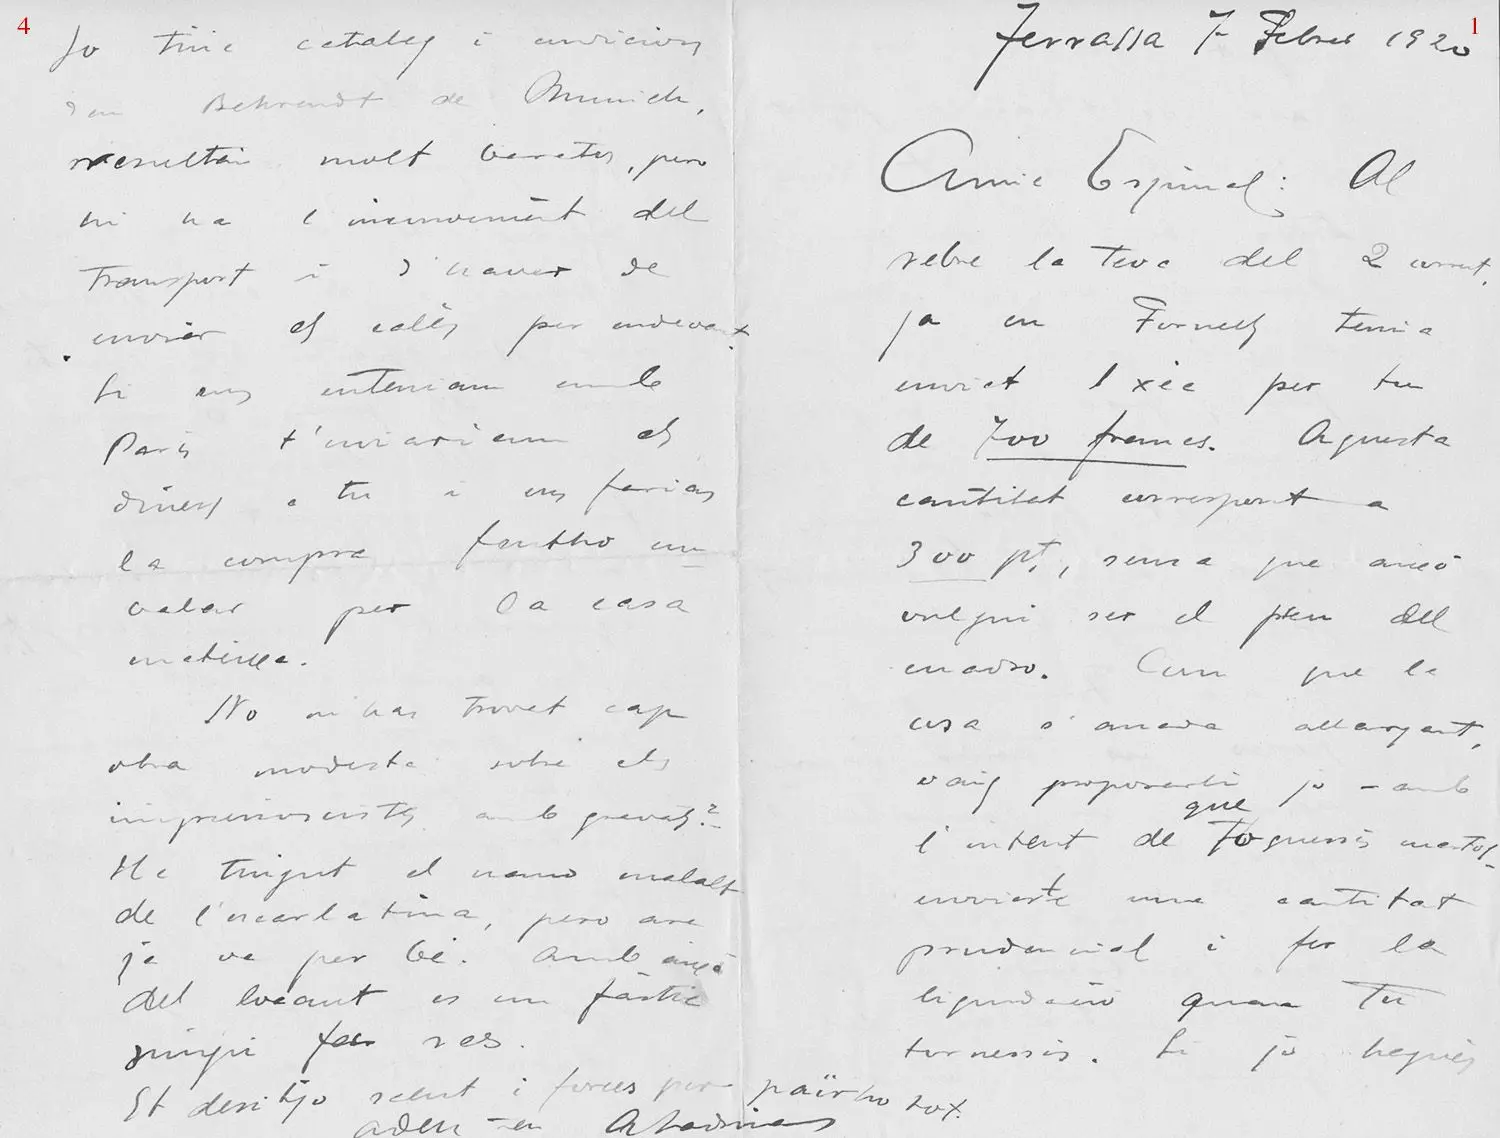 1
Terrassa 7- Febrer 1920
Amic Espinal: Al
rebre la teva del 2 corrent,
ja en Fornells tenia
enviat l xèc per tu
de 700 francs. Aquesta
cantitat correspont a
300 pts, sensa que aixó
vulgui ser el preu del
cuadro. Com que la
cosa s'anava allargant,
vaig proposarli jo - amb
l'intent de que toquessis
enviarte una cantitat
prudencial i fer la
liquidació quan tu
tornessis. Si jo hagués
4
Jo tinc cataleg i condicions
d'en Behrendt de Munich,
resultan molt baratos, pero
hi ha l'inconvenient del
transport i d'haver de
enviar els calés per endevant.
Si ens enteniam amb
Paris t'enviariem els
diners a tu i ens farias
la compra fentho em-
balar per la casa
mateixa.
No hi has trovat cap
obra modesta sobre els
impresionistes amb gravats?
He tingut el nano malalt
de l'escarlatina, pero are
ja va per bé. Amb aixó
del locaut es un fàstic
ningú fa res.
Et desitjo salut i forces per païrho tot.
adeu -en